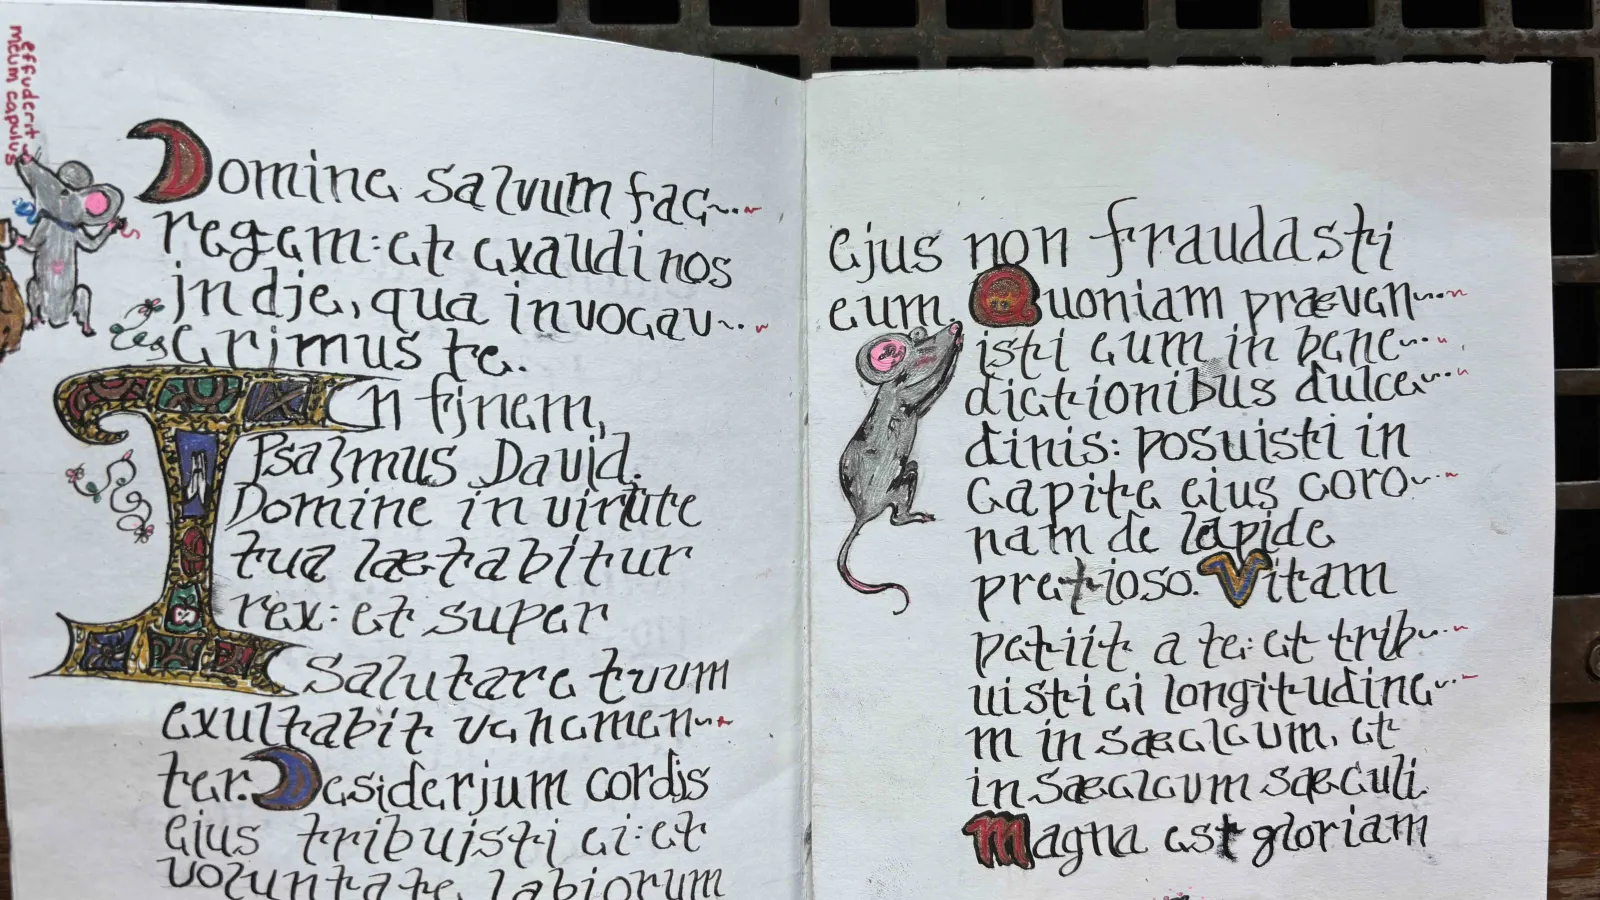 effuderit
meum capulus
Domine salvum fac
regem: et exaudi nos
in die, qua invocav
erimus te.
In finem,
Psalmus David.
Domine in virtute
tua lætabitur
rex: et super
Salutare tuum
exultabit vehemen
ter. Desiderium cordis
ejus tribuisti ei: et
voluntate labiorum
ejus non fraudasti
eum. Quoniam præven
isti eum in bene
dictionibus dulce
dinis: posuisti in
capite ejus coro
nam de lapide
pretioso. Vitam
petiit a te: et trib
uisti ei longitudine
m in sæclcum, et
in sæclcum sæculi
Magna est gloriam